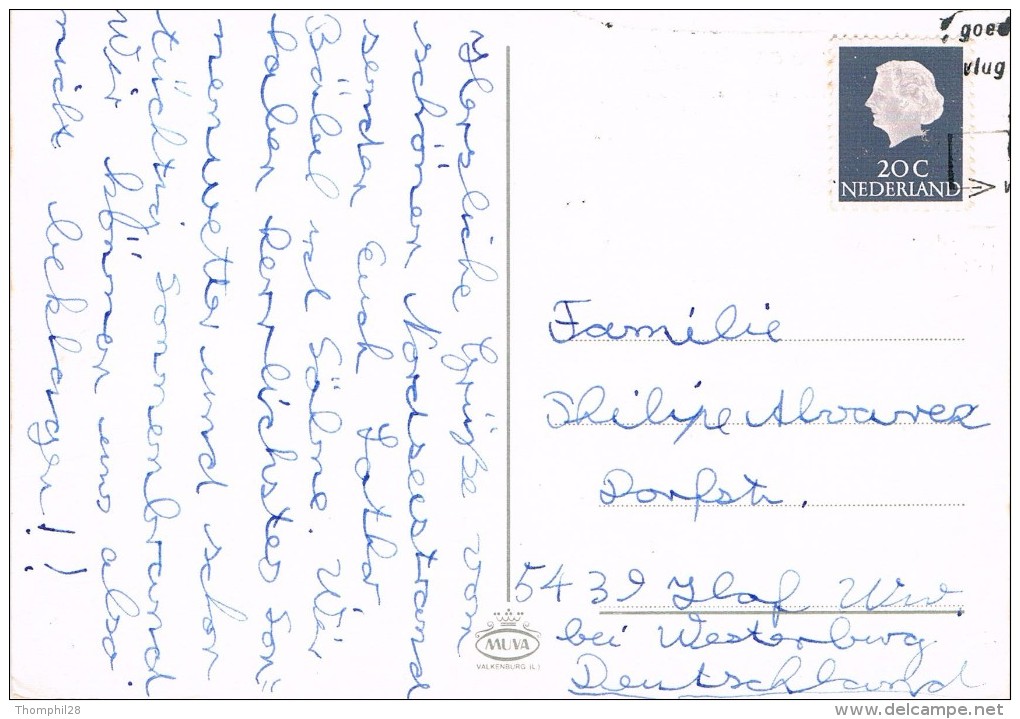 Herzliche Grüße vom
schönen Nordseestrand
senden Euch Lothar
Bärbel und Söhne. Wir
haben herrlichstes Son=
nenwetter und schon
tüchtig Sonnenbrand
Wir können uns also
nicht beklagen!!
goed
vlug
20 C
NEDERLAND
Familie
Philipe Alvarez
Dorfstr.
5439 Hof Ww.
bei Westerburg
Deutschland
MUVA
VALKENBURG (L.)
Thomphil28
delcampe.net